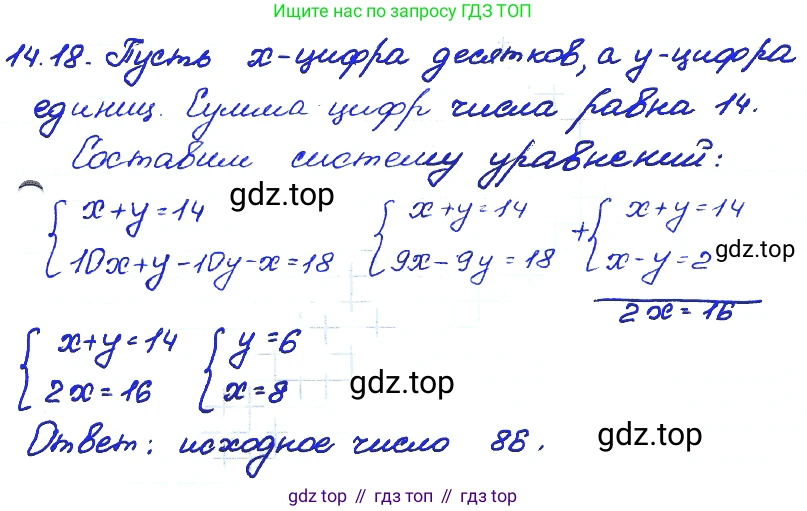 Ищите нас по запросу ГДЗ ТОП
14.18. Пусть x-цифра десятков, а y-цифра
единиц. Сумма цифр числа равна 14.
Составим систему уравнений:
{ x+y=14 gdz.top { x+y=14 + { x+y=14
{ 10x+y-10y-x=18 { 9x-9y=18 { x-y=2 gdz.top
2x=16
{ x+y=14 { y=6
{ 2x=16 { x=8 gdz.top
Ответ: исходное число 86. gdz.top
gdz top // гдз топ // gdz top